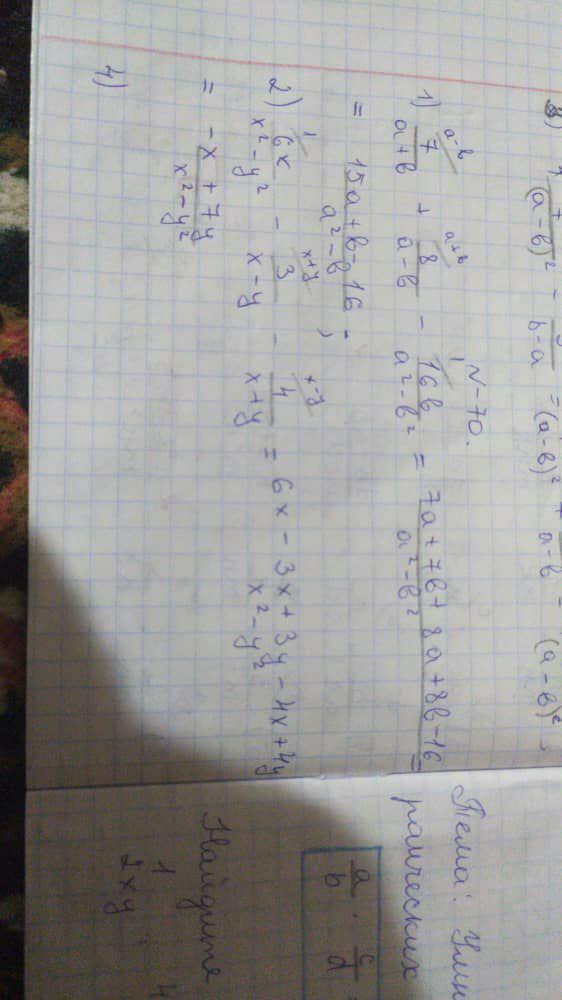 (a-b)² - b-a = (a-b)² + a-b - (a-b)²
N-70.
1) 7/(a+b) + 8/(a-b) - 16b/(a²-b²) = (7a+7b+8a+8b-16)/(a²-b²) =
a-b a+b 1
= (15a+b-16)/(a²-b),
2) 6x/(x²-y²) - 3/(x-y) - 4/(x+y) = (6x-3x+3y-4x+4y)/(x²-y²)
1 x+y x-y
= (-x+7y)/(x²-y²)
4)
Тема: Умн
раических
a/b · c/d
Найдите
1/2xy